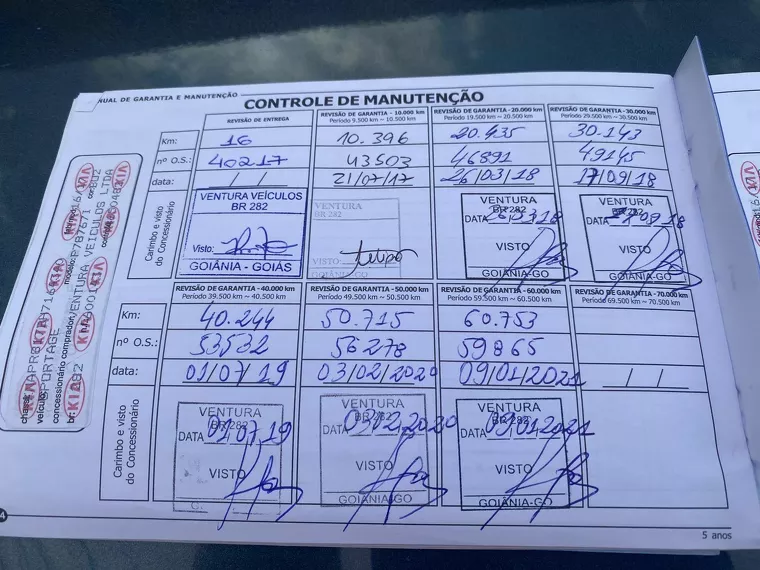 NUAL DE GARANTIA E MANUTENÇÃO
CONTROLE DE MANUTENÇÃO
REVISÃO DE ENTREGA
REVISÃO DE GARANTIA - 10.000 km
Período 9.500 km ~ 10.500 km
REVISÃO DE GARANTIA - 20.000 km
Período 19.500 km ~ 20.500 km
REVISÃO DE GARANTIA - 30.000 km
Período 29.500 km ~ 30.500 km
Km: 16 10.396 20.435 30.143
nº O.S.: 40217 43503 46891 49145
data: / / 21/07/17 26/03/18 17/09/18
Carimbo e visto
do Concessionário
VENTURA VEÍCULOS
BR 282
Visto:
GOIÂNIA - GOIÁS
VENTURA
BR 282
VISTO: Felipe
GOIÂNIA-GO
VENTURA
BR 282
DATA
VISTO
GOIÂNIA-GO
VENTURA
BR 282
DATA
VISTO
GOIÂNIA-GO
REVISÃO DE GARANTIA - 40.000 km
Período 39.500 km ~ 40.500 km
REVISÃO DE GARANTIA - 50.000 km
Período 49.500 km ~ 50.500 km
REVISÃO DE GARANTIA - 60.000 km
Período 59.500 km ~ 60.500 km
REVISÃO DE GARANTIA - 70.000 km
Período 69.500 km ~ 70.500 km
Km: 40.244 50.715 60.753
nº O.S.: 53532 56278 59865
data: 01/07/19 03/02/2020 09/01/2021 / /
Carimbo e visto
do Concessionário
VENTURA
BR 282
DATA 01.07.19
VISTO
G.
VENTURA
BR 282
DATA 03.02.2020
VISTO
GOIÂNIA-GO
VENTURA
BR 282
DATA 09.01.2021
VISTO
GOIÂNIA-GO
chassi
veículo SPORTAGE
concessionário comprador VENTURA VEICULOS LTDA
br: 282
modelo
KIA
KIA
KIA
KIA
KIA
KIA
KIA
KIA
4
5 anos